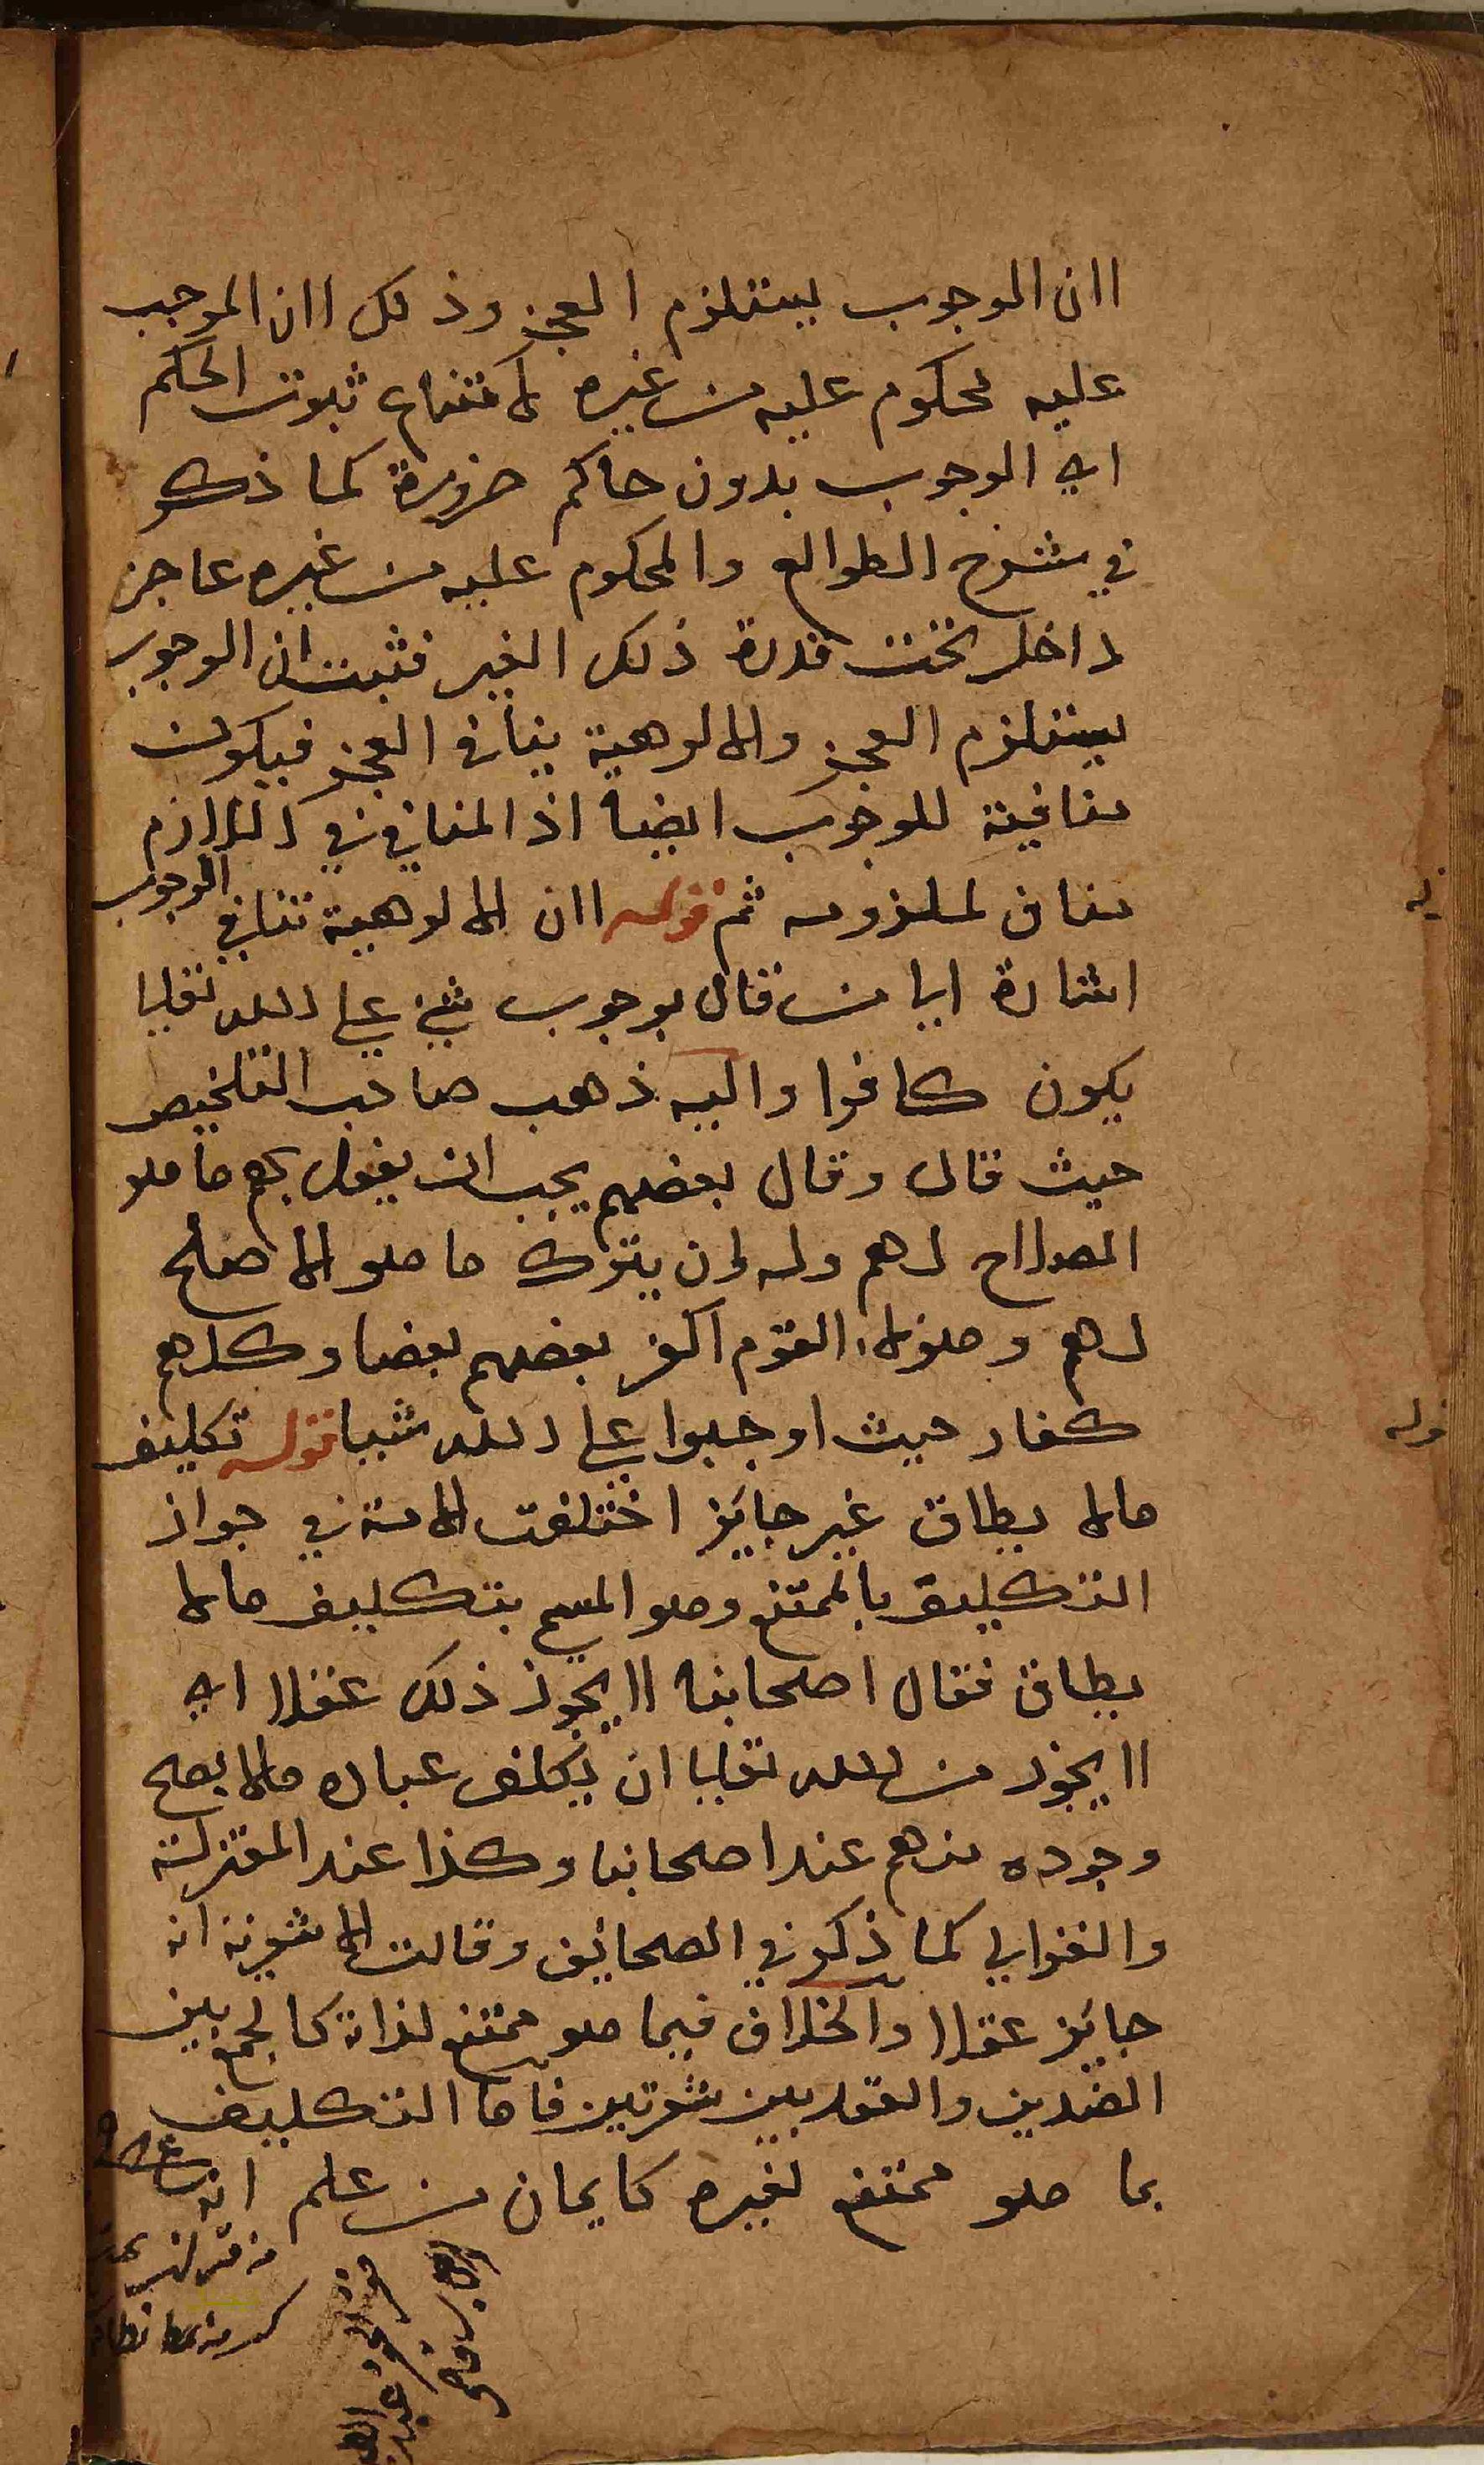 لان الوجوب يستلزم العجز وذلك لان الموجب
عليه محكوم عليه من غيره لامتناع ثبوت الحكم
اي الوجوب بدون حاكم ضرورة كما ذكر
في شرح الطوالع والمحكوم عليه من غيره عاجز
داخل تحت قدرة ذلك الغير فثبت ان الوجوب
يستلزم العجز والالوهية ينافي العجز فيكون
منافية للوجوب ايضا اذ المنافي في اللازم
مناف لملزومه ثم قوله لان الالوهية تنافي الوجوب
اشارة الى من قال بوجوب شئ على الله تعالى
يكون كافرا واليه ذهب صاحب التلخيص
حيث قال وقال بعضهم يجب ان يفعل بهم ما هو
الصلاح لهم وله ان يترك ما هو الاصلح
لهم وهؤلاء القوم اكفر بعضهم بعضا وكلهم
كفار حيث اوجبوا على الله شيا قوله تكليف
مالا يطاق غير جايز اختلفت الامة في جواز
التكليف بالممتنع وهو المسمى بتكليف مالا
يطاق فقال اصحابنا لا يجوز ذلك عقلا اي
لا يجوز من الله تعالى ان يكلف عباده مالا يصح
وجوده منهم عند اصحابنا وكذا عند المعتزلة
والغزالي كما ذكر في الصحائف وقالت الاشعرية انه
جايز عقلا والخلاف فيما هو ممتنع لذاته كالجمع بين
الضدين والعقد بين شعرتين فاما التكليف
بما هو ممتنع لغيره كايمان من علم انه
قوله